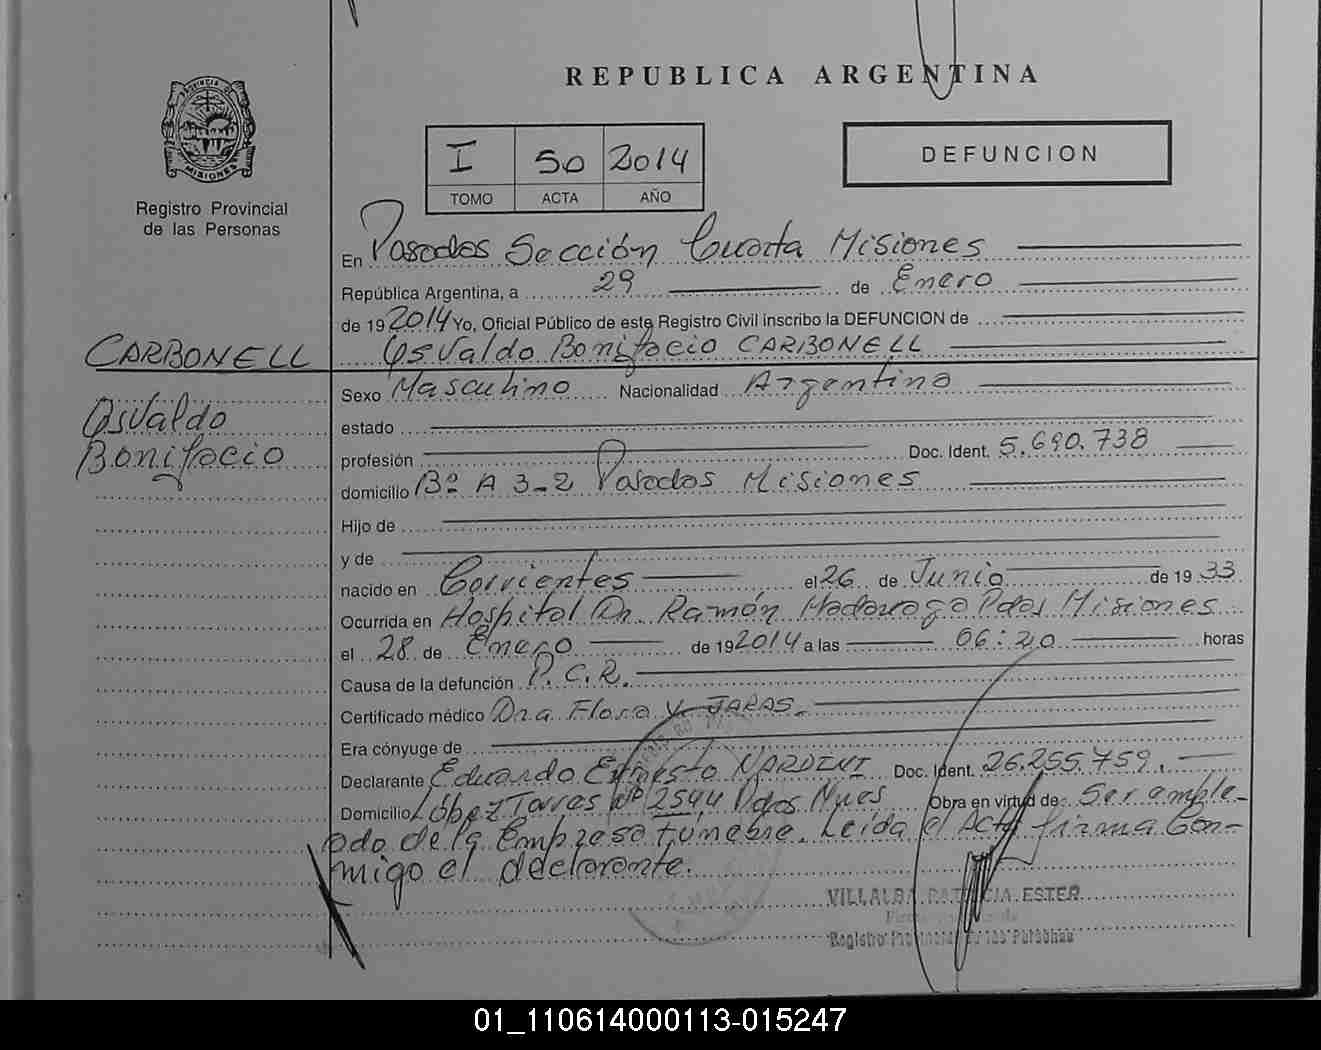 REPUBLICA ARGENTINA
PROVINCIA DE
MISIONES
Registro Provincial
de las Personas
I 50 2014
TOMO ACTA AÑO
DEFUNCION
En Posadas Sección Cuarta Misiones
República Argentina, a 29 de Enero
de 19 2014 Yo, Oficial Público de este Registro Civil inscribo la DEFUNCION de
Osvaldo Bonifacio CARBONELL
CARBONELL
Osvaldo
Bonifacio
Sexo Masculino Nacionalidad Argentina
estado
profesión Doc. Ident. 5.690.738
domicilio Bº A 3-2 Posadas Misiones
Hijo de
y de
nacido en Corrientes el 26 de Junio de 19 33
Ocurrida en Hospital Dr. Ramón Madariaga Pdas Misiones
el 28 de Enero de 19 2014 a las 06:20 horas
Causa de la defunción P.C.R.
Certificado médico Dra Flora Y. JARAS.
Era cónyuge de
Declarante Eduardo Ernesto NARDINI Doc. Ident. 26.255.759.
Domicilio López Torres Nº 2544 Pdas Mnes Obra en virtud de: Ser emple-
ado de la Empresa fúnebre. Leída el Acta firma con-
migo el declarante.
VILLALBA PATRICIA ESTER
Registro Provincial de las Personas
01_110614000113-015247